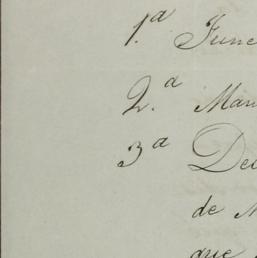 1.ª Func
2.ª Man
3ª Dec
de M
que